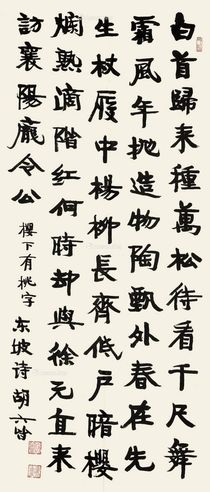 白首歸来種萬松待看千尺舞
霜風年抛造物陶甄外春在先
生杖屨中楊柳長齊低户暗櫻
爛熟滴階紅何時却與徐元直来
訪襄陽龐令公
櫻下有桃字
东坡诗 胡六皆